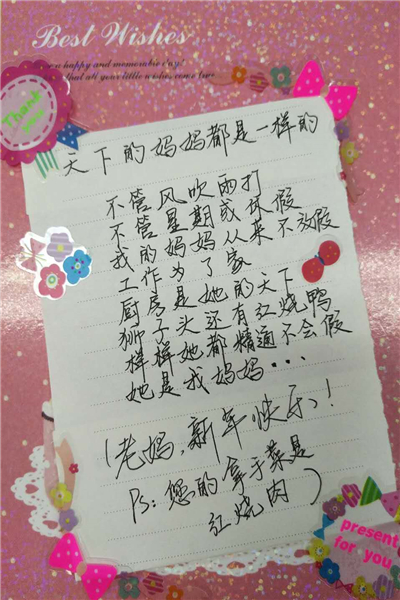 Best Wishes
happy and memorable day!
that all your little wishes come true
Thank
天下的妈妈都是一样的
不管风吹雨打
不管星期或休假
我的妈妈从来不放假
工作为了家
厨房是她的天下
狮子头还有红烧鸭
样样她都精通不会假
她是我妈妈...
(老妈,新年快乐!
Ps:您的拿手菜是
红烧肉)
present
for you